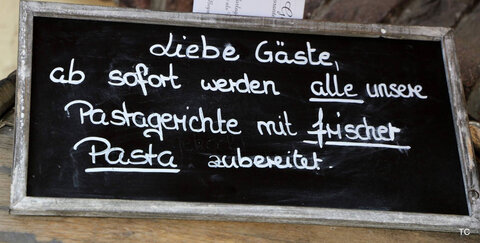 Liebe Gäste,
ab sofort werden alle unsere
Pastagerichte mit frischer
Pasta zubereitet.
TC